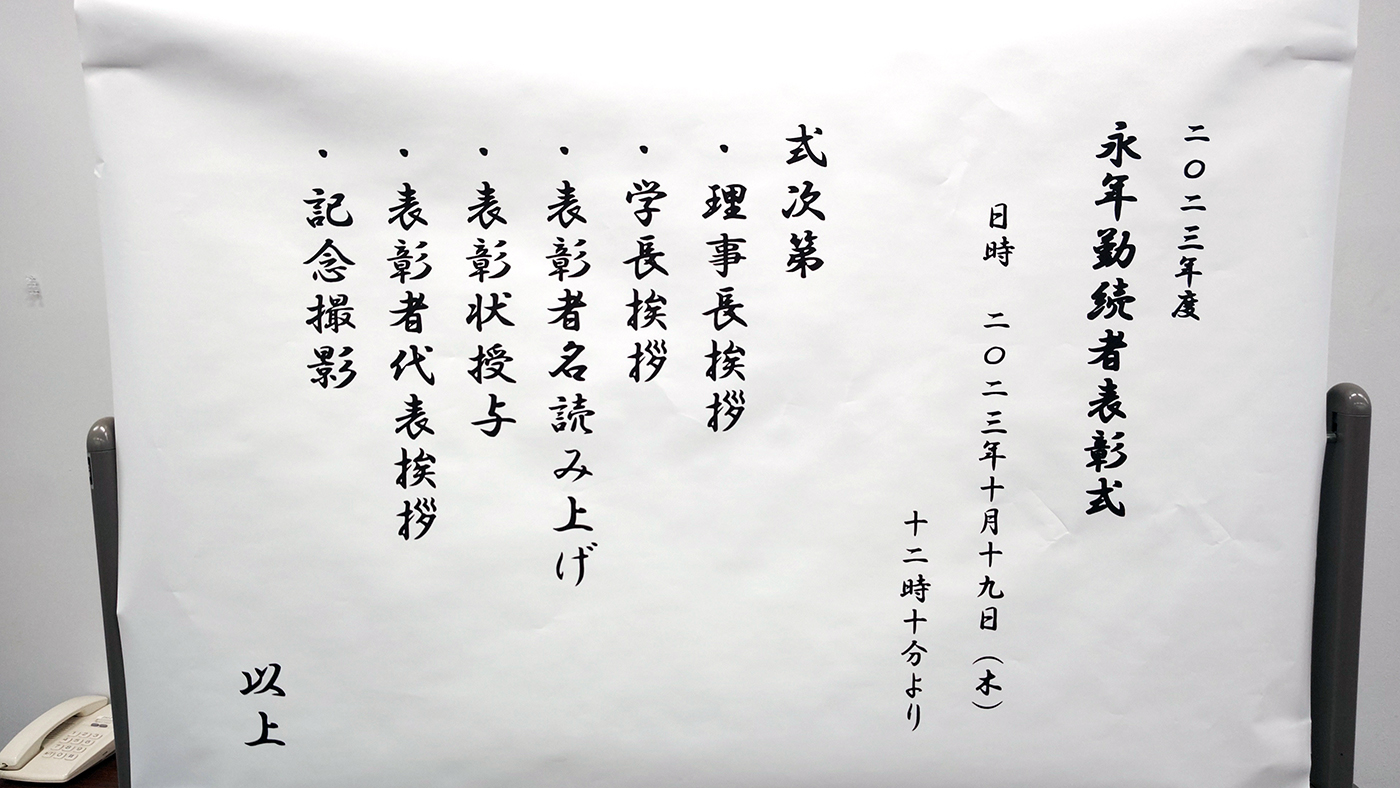 二〇二三年度
永年勤続者表彰式
日時 二〇二三年十月十九日（木）
十二時十分より
式次第
・理事長挨拶
・学長挨拶
・表彰者名読み上げ
・表彰状授与
・表彰者代表挨拶
・記念撮影
以上